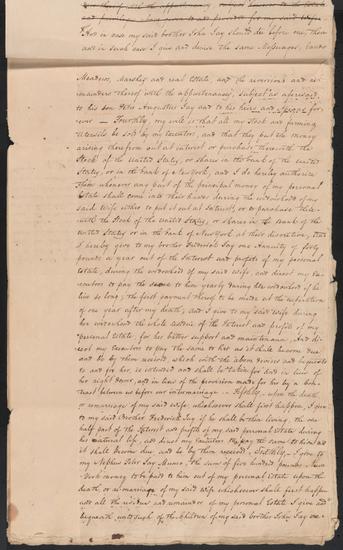 and
But in case my said brother John Jay should die before me, then
and in such case I give and devise the same Messuages, Lands
Meadows, Marshes and real Estate, and the reversions and re-
mainders thereof with the appurtenances, subject as aforesaid,
to his son Peter Augustus Jay and to his heirs and assigns for
ever — Fourthly, my will is that all my Stock and farming
Utensils be sold by my Executors, and that they put the money
arising therefrom out at interest or purchase therewith the
Stock of the United States, or shares in the bank of the United
States, or in the bank of New York, and I do hereby authorize
them whenever any part of the principal money of my personal
Estate shall come into their hands during the widowhood of my
said wife either to put it out at Interest, or to purchase there-
with the Stock of the United States, or shares in the Bank of the
United States or in the bank of New York at their discretion, and
I hereby give to my brother Frederick Jay one Annuity of fifty
pounds a year out of the Interest and profits of my personal
Estate, during the widowhood of my said wife, and direct my Ex-
ecutors to pay the same to him yearly during her widowhood if he
live so long; the first payment thereof to be made at the expiration
of one year after my death; and I give to my said wife during
her widowhood the whole residue of the Interest and profits of my
personal Estate, for her better support and maintenance, and di-
rect my Executors to pay the same to her as it shall become due
and be by them received, which with the above devises and bequests
to and for her, is intended and shall be taken for and in lieu of
her right dower, and in lieu of the provision made for her by a con-
tract between us before our intermarriage. — Fifthly, upon the death
or remarriage of my said wife, whichever shall first happen, I give
to my said Brother Frederick Jay if he shall be then living, the one
half part of the Interest and profits of my said personal Estate during
his natural life, and direct my Executors to pay the same to him as
it shall become due and be by them received, Sixthly, I give to
my Nephew Peter Jay Munro, the sum of five hundred pounds, New
York money to be paid to him out of my personal Estate upon the
death, or remarriage of my said wife whichsoever shall first happen
and all the residue and remainder of my personal Estate I give and
bequeath unto such of the Children of my said brother John Jay and